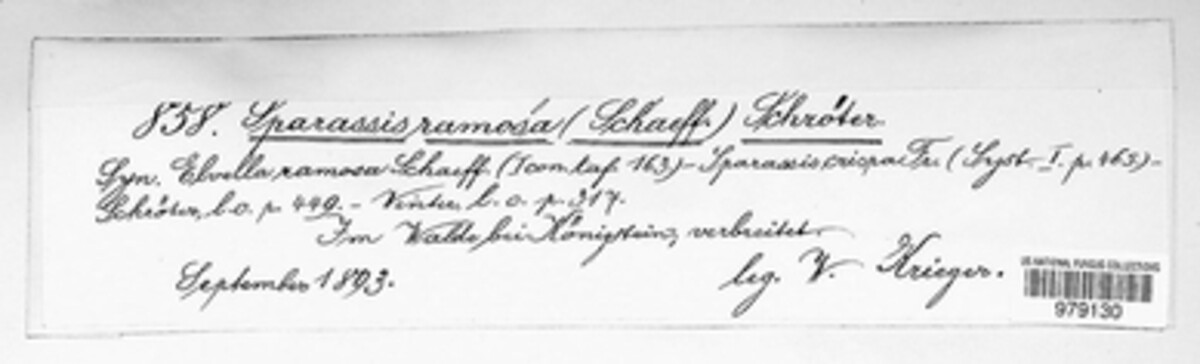 858. Sparassis ramosa (Schaeff.) Schröter.
Syn. Elvella ramosa Schaeff. (Icon. taf. 163) – Sparassis crispa Fr. (Syst. I. p. 465) –
Schröter, l. c. p. 449. – Winter, l. c. p. 317.
Im Walde bei Königstein, verbreitet.
September 1893. leg. W. Krieger.
US NATIONAL FUNGUS COLLECTIONS
979130